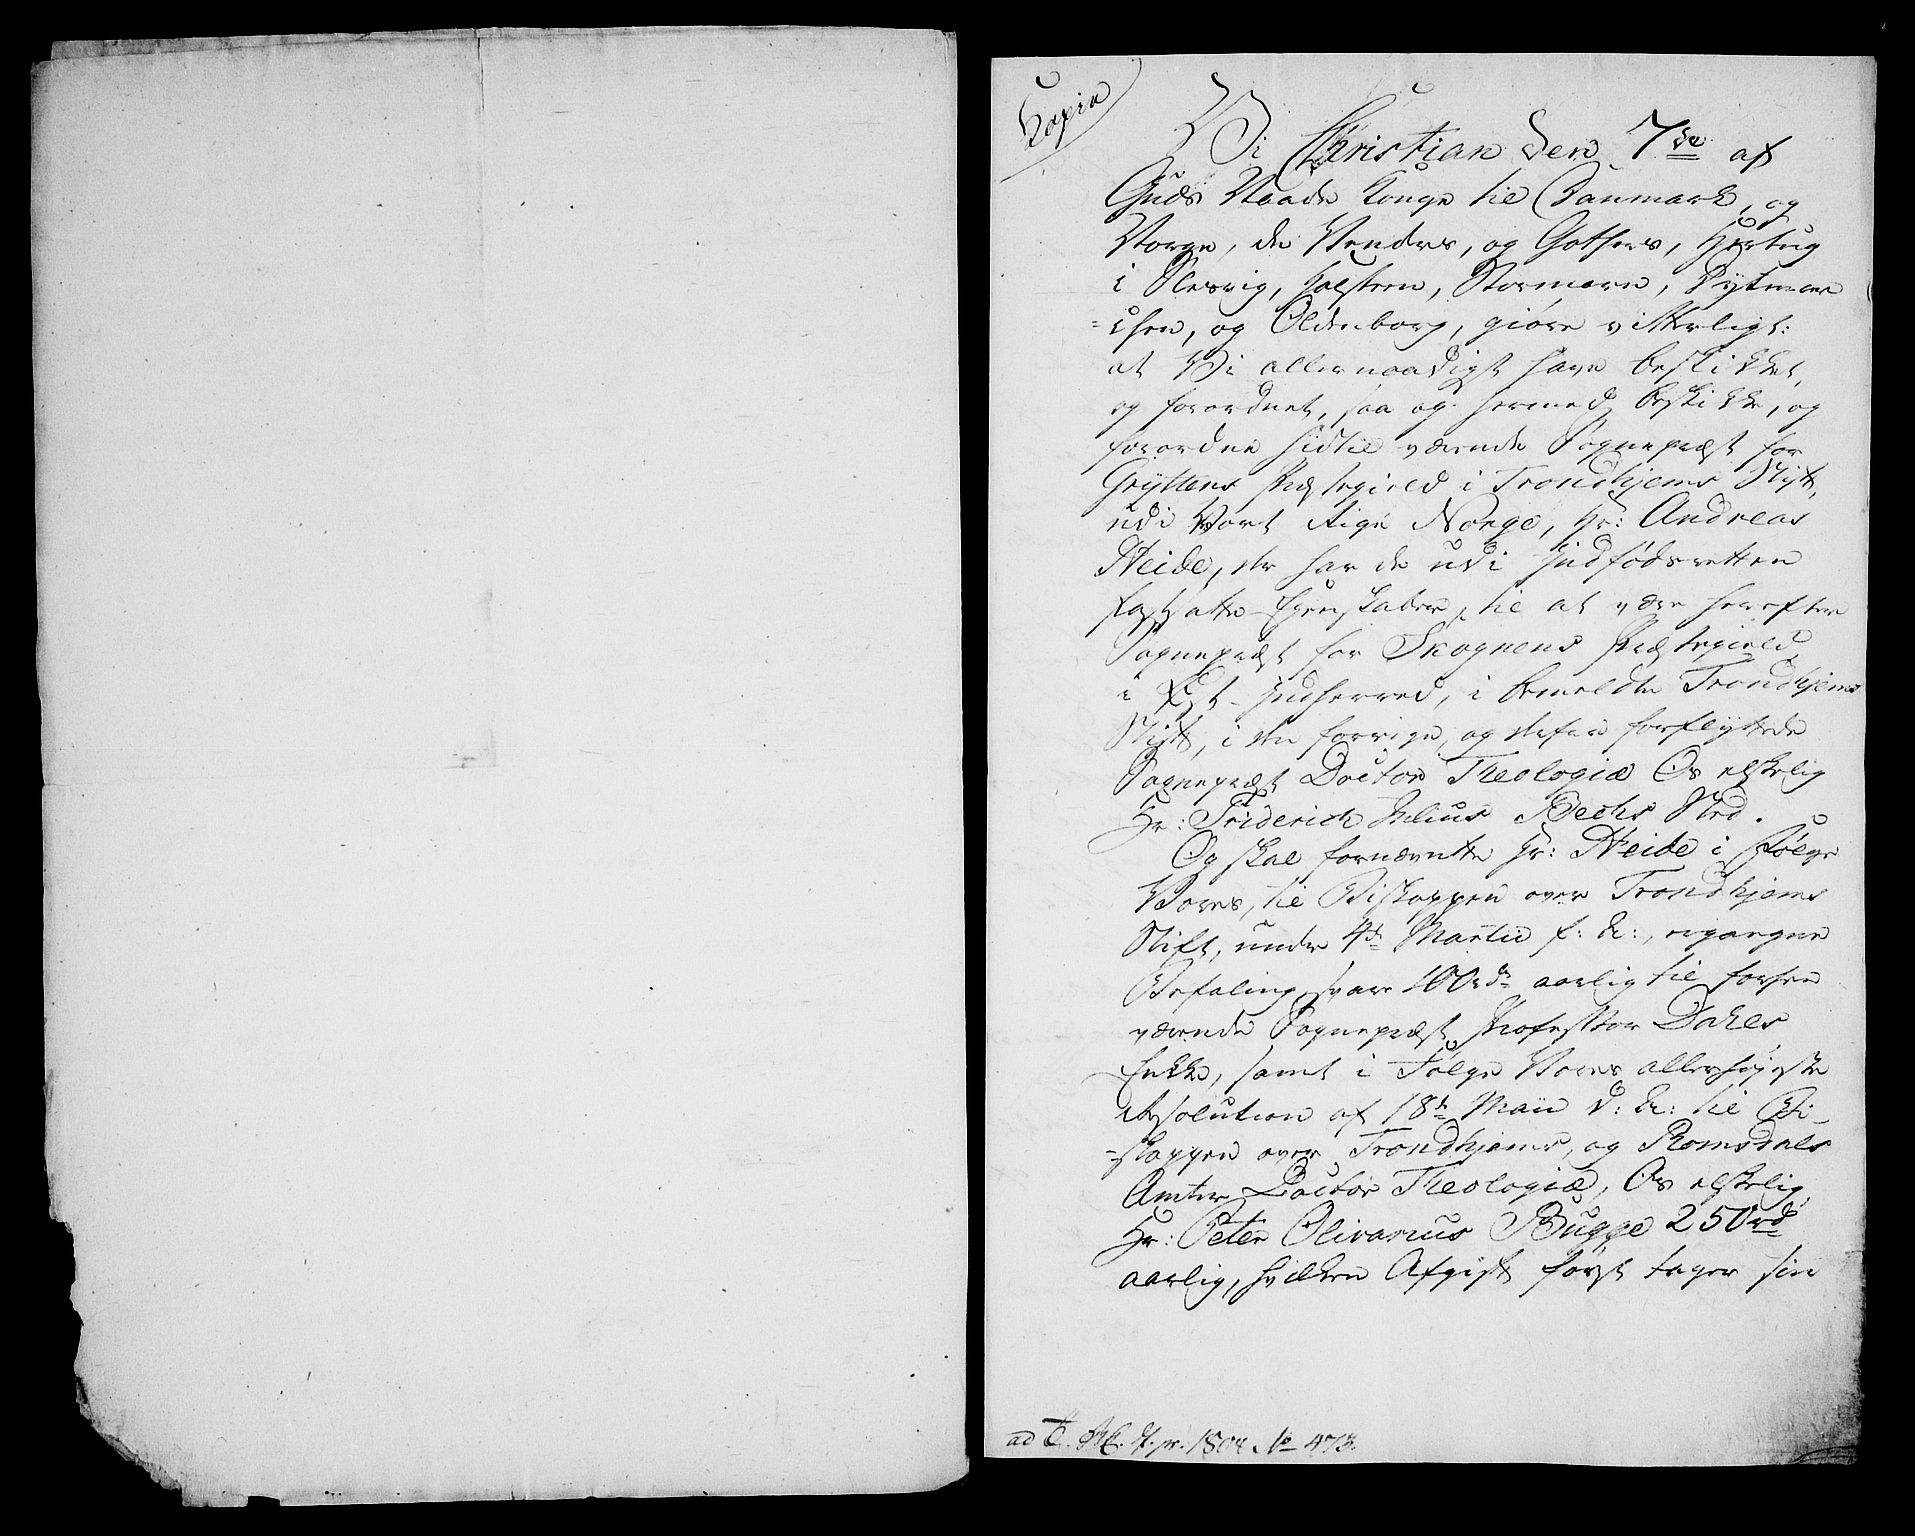 Kopia
Vi Christian den 7de af
Guds Naade Konge til Danmark, og
Norge, de Venders, og Gothers, Hertug
i Slesvig, Holsteen, Stormarn, Dytmar
=shen, og Oldenborg, giøre vitterligt:
at Vi allernaadigst have beskikket,
og forordnet, saa og hermed beskikke, og
forordne hidtil værende Sognepræst for
Gryttens Præstegield i Trondhjems Stift,
udi Vort Rige Norge, Hr: Andreas
Heide, der har de udi Indfødsretten
fastsatte Egenskaber, til at være herefter
Sognepræst for Skognens Præstegield
i Indherred, i bemeldte Trondhjems
Stift, i den forrige, og derfra forflyttede
Sognepræst Doctor Theologiæ Os elskelig
Hr: Friderich Julius Bechs Sted.
Og skal fornævnte Hr: Heide i Følge
Vores, til Biskoppen over Trondhjems
Stift, under 4de Martii f: A:, ergangne
Befaling, svare 100rd aarlig til forhen
værende Sognepræst Professor Dahls
Enke, samt i Følge Vores allerhøjeste
Resolution af 18de Maii d: A: til Bi=
=skoppen over Trondhjems, og Romsdals
Amter Doctor Theologiæ, Os elskelig
Hr: Peter Olivarius Bugge 250rd
aarlig, hvilken Afgift først tager sin
ad 1804 No 473.